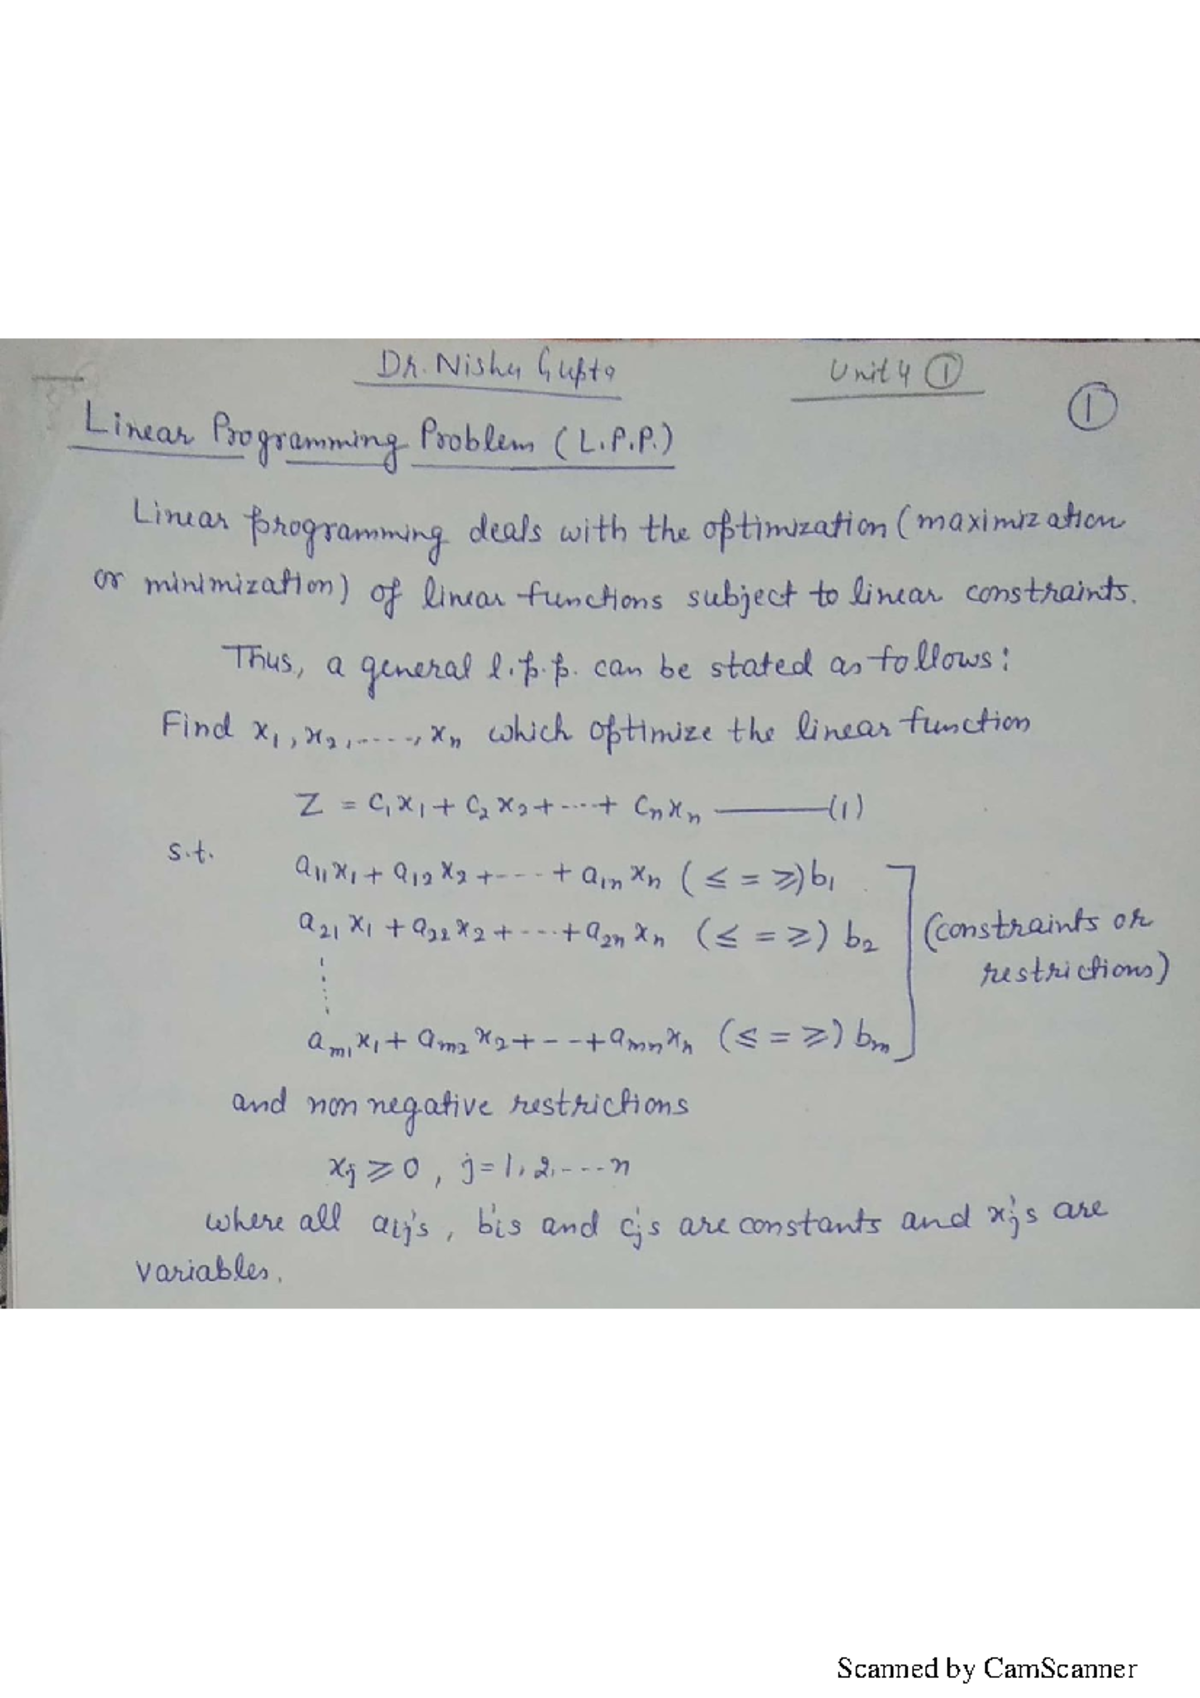 Dr. Nishu Gupta
Unit 4 ①
①
Linear Programming Problem (L.P.P.)
Linear programming deals with the optimization (maximization
or minimization) of linear functions subject to linear constraints.
Thus, a general l.p.p. can be stated as follows:
Find x₁, x₂, ....., xₙ which optimize the linear function
Z = c₁x₁ + c₂x₂ + ---- + cₙxₙ ———(1)
s.t.
a₁₁x₁ + a₁₂x₂ + ---- + a₁ₙxₙ (≤ = ≥) b₁
a₂₁x₁ + a₂₂x₂ + ---- + a₂ₙxₙ (≤ = ≥) b₂
(constraints or
restrictions)
aₘ₁x₁ + aₘ₂x₂ + -- + aₘₙxₙ (≤ = ≥) bₘ
and non negative restrictions
xⱼ ≥ 0, j = 1, 2, ---- n
where all aᵢⱼ's, bᵢ's and cⱼ's are constants and xⱼ's are
variables.
Scanned by CamScanner